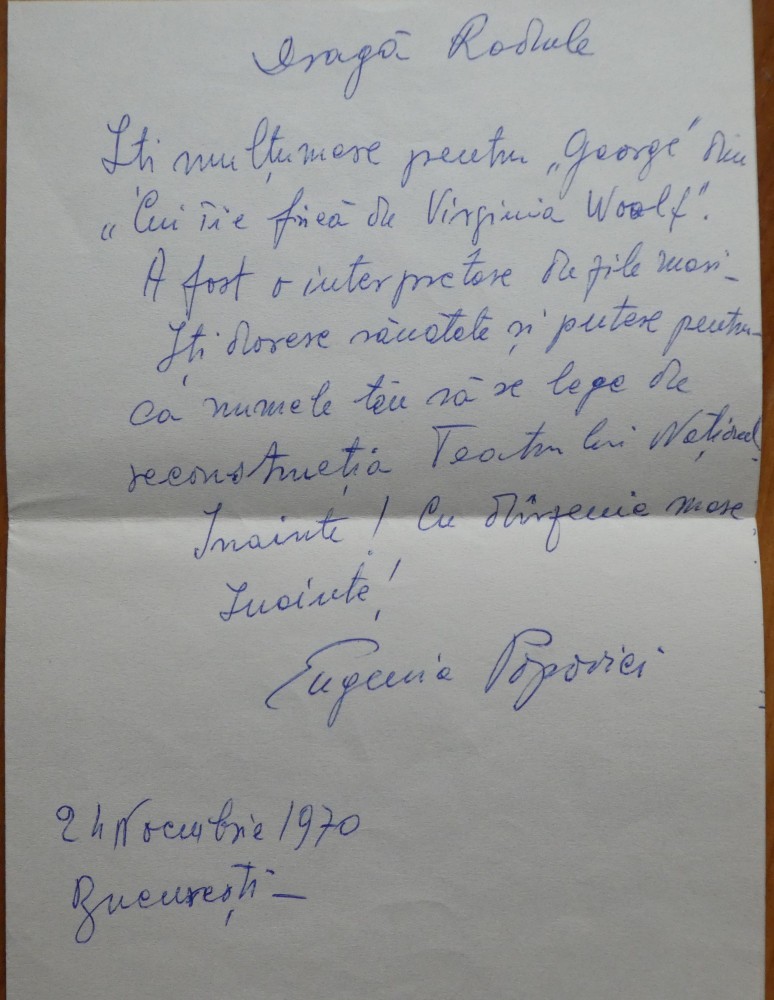 Dragă Radule
Iti mulțumesc pentru „George" din
„Cui îi e frică de Virginia Woolf".
A fost o interpretare de zile mari –
Iți doresc sănătate și putere pentru
ca numele tău să se lege de
reconstrucția Teatrului Național.
Inainte! Cu dîrzenie mare
Inainte!
Eugenia Popovici
24 Noembrie 1970
București –